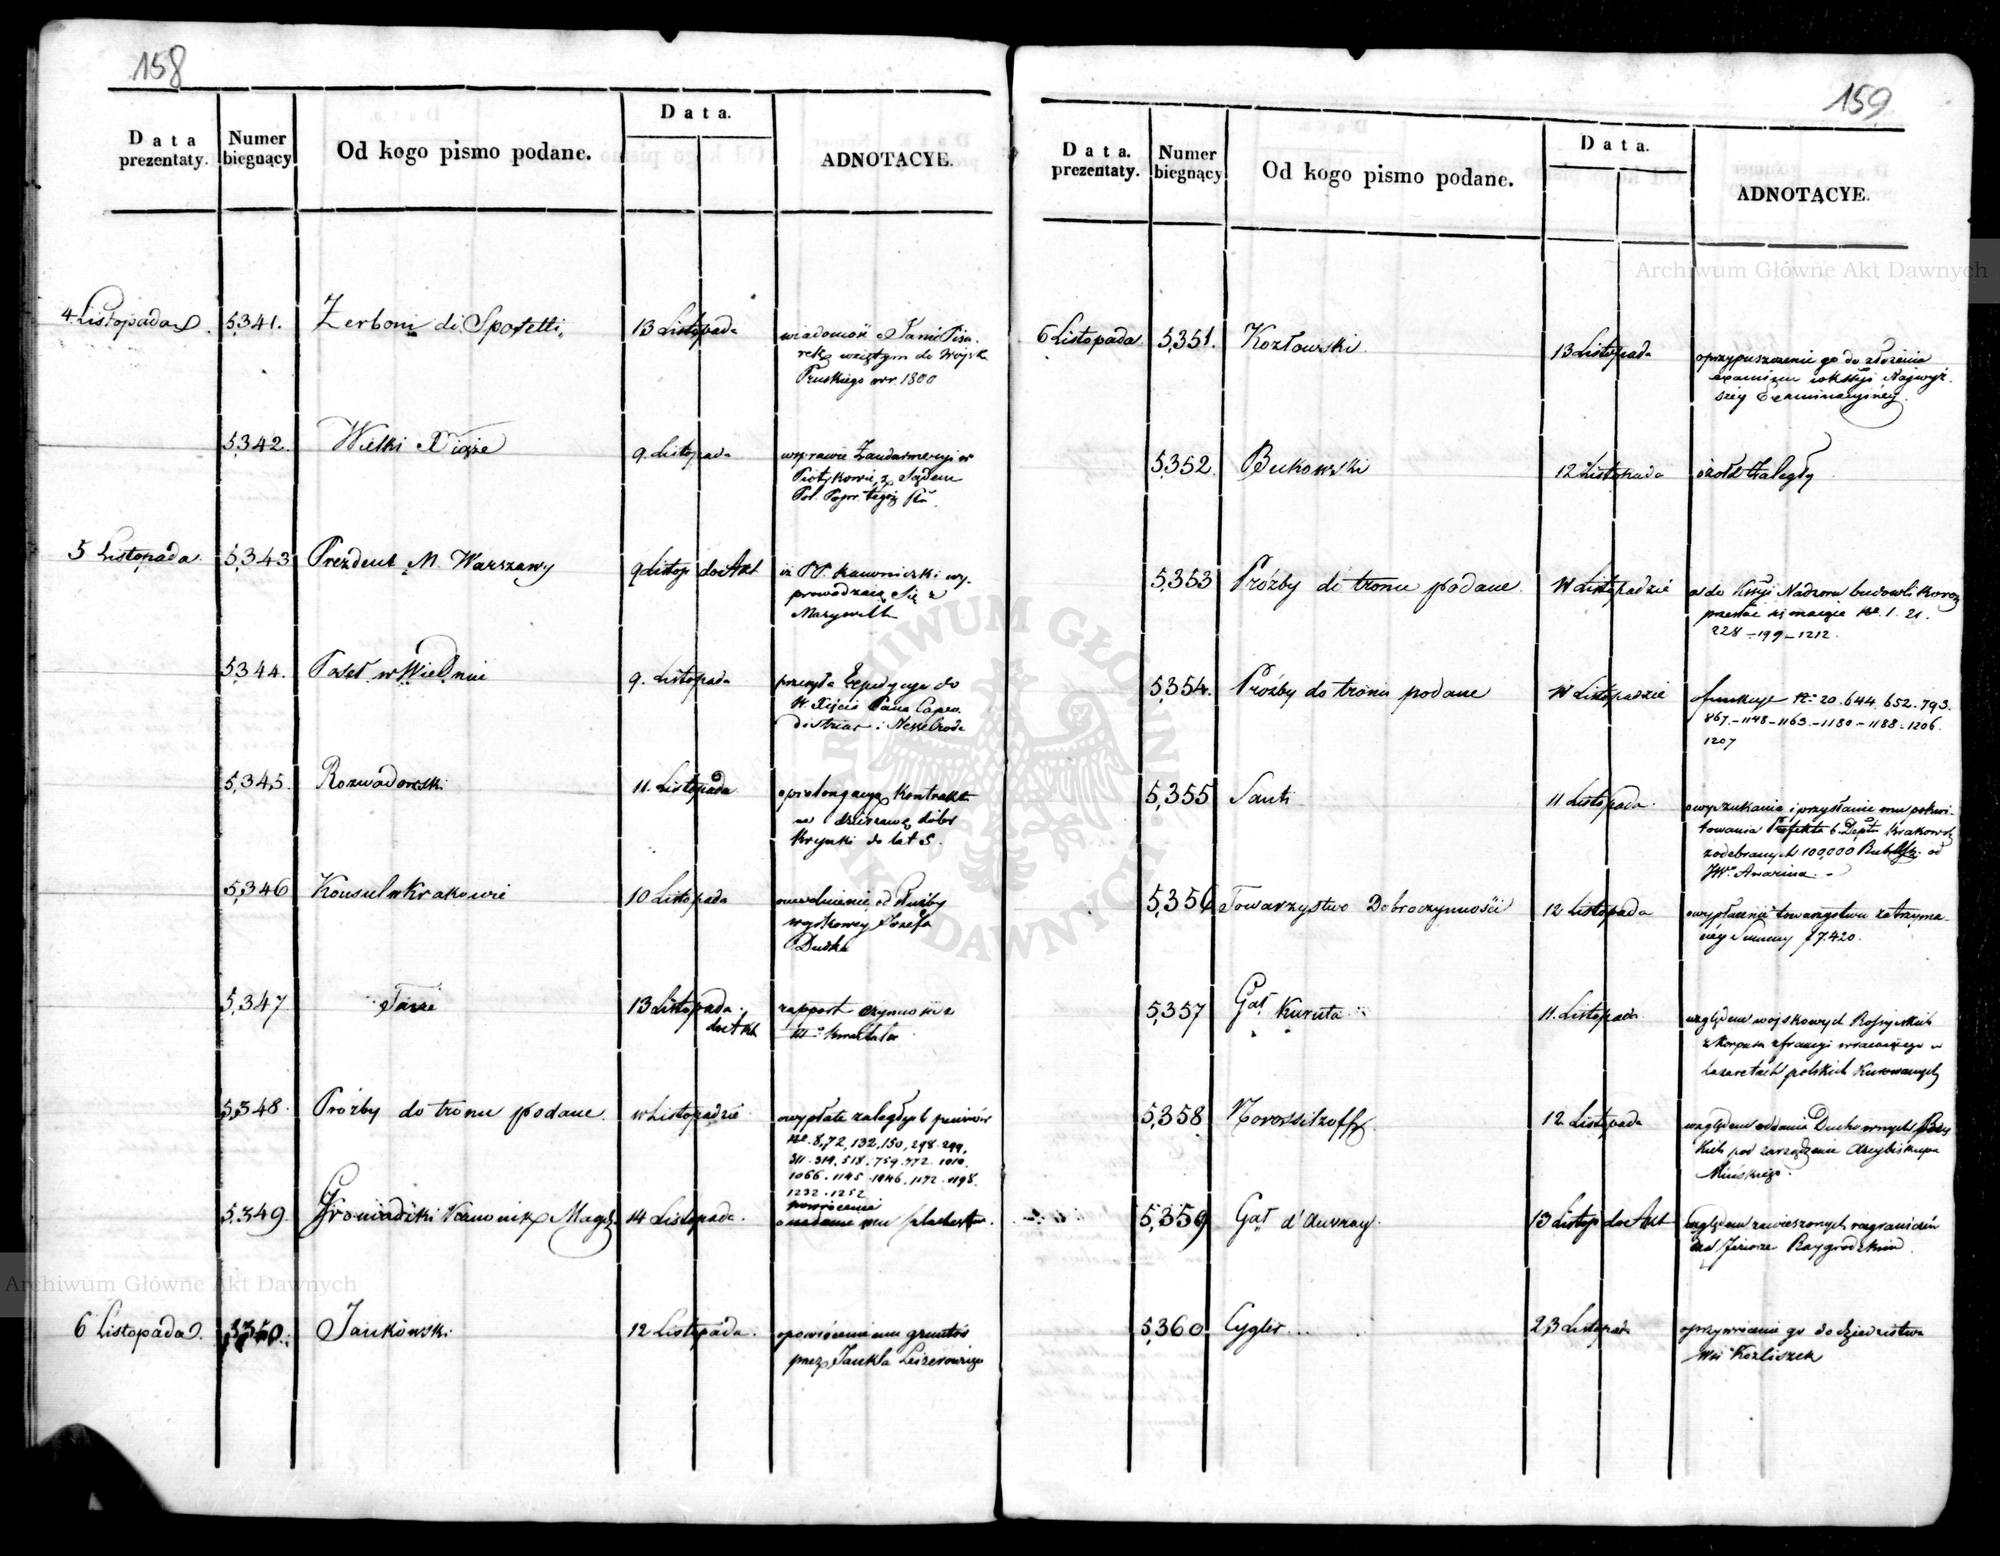 158
Data prezentaty.
Numer biegnący
Od kogo pismo podane.
Data.
ADNOTACYE.
4 Listopada 5,341. Zerboni di Sposetti 13 Listopada
wiadomość
wziętym do Wojsk
Pruskiego w r. 1800
5,342. Wielki Xiąże 9. Listopada
w sprawie Żandarmeryi w
Piotrkowie z Sądem
Pol. Popr. tegoż
5 Listopada 5,343 Prezdent M. Warszawy 9 Listop do Akt
iż PP. Kanoniczki wy-
prowadzają się z
Marywilla
5,344. Poseł w Wiedniu 9. Listopada
przesyła Expedycye do
W. Xięcia Pana Capo
distrias i Nesselrode
5,345 Rozwadowski 11. Listopada
o prolongacyą kontraktu
na dzierżawę dóbr
Krynki do lat 5.
5,346 Konsul w Krakowie 10 Listopada
o uwolnienie od służby
woyskowey Józefa
Duska
5,347 Tenże 13 Listopada do Akt
rapport czynności z
III kwartału
5,348. Próżby do tronu podane w Listopadzie
o wypłatę zaległych
Nr. 8, 72, 132, 150, 298. 299,
311. 314, 518. 759. 772. 1010.
1066. 1145. 1146. 1172. 1198.
1232. 1252
5,349. Gromadzki Kanonik Magd 14 Listopada.
powrócenie
o nadanie mu szlachectwa.
6 Listopada 5350. Jankowski 12 Listopada.
o powrócenie mu gruntów
przez Jankla Leizerowicza
159
Data. prezentaty.
Numer biegnący
Od kogo pismo podane.
Data.
ADNOTACYE.
6 Listopada 5,351. Kozłowski 13 Listopada
o przypuszczenie go do złożenia
examinu w Kssyi Najwyż-
szey Examinacyjney.
5,352. Bukowski 12 Listopada
o żołd zaległy
5,353 Próżby do tronu podane. w Listopadzie
do Kssyi Nadzoru budowli Koron
przesłać się maiące Nr. 1. 21.
228 - 199 - 1212.
5,354. Próżby do tronu podane w Listopadzie
o funkcye Nr. 20. 644. 652. 793.
867. - 1148 - 1163. - 1180 - 1188 - 1206.
1207
5,355 Santi 11 Listopada.
o wyszukanie i przysłanie mu pokwi-
towania Prefekta Deptu Krakows
z odebranych 100,000 Rubli od
JW. Awarina. -
5,356 Towarzystwo Dobroczynności 12 Listopada
o wypłacenie towarzystwu zatrzyma-
néy Summy f 7.420.
5,357 Gał Kuruta 11. Listopada
względem wojskowych Rossyiskich
z korpusu z francyi wracaiącego w
Lazaretach polskich kurowanych
5,358 Novossiltzoff 12 Listopada
względem oddania Duchownych
pod zarządzenie Arcybiskupa
Mińskiego.
5,359 Gał d'Auvray. 13 Listop do Akt
względem zawieszonych rozgraniczeń
nad Jezioro Raygrodzkim.
5,360 Cygler... 23 Listopada
o przywrócenie go do dziedzictwa
wsi Kozliszek
Archiwum Główne Akt Dawnych
Archiwum Główne Akt Dawnych
ARCHIWUM GŁÓWNE AKT DAWNYCH